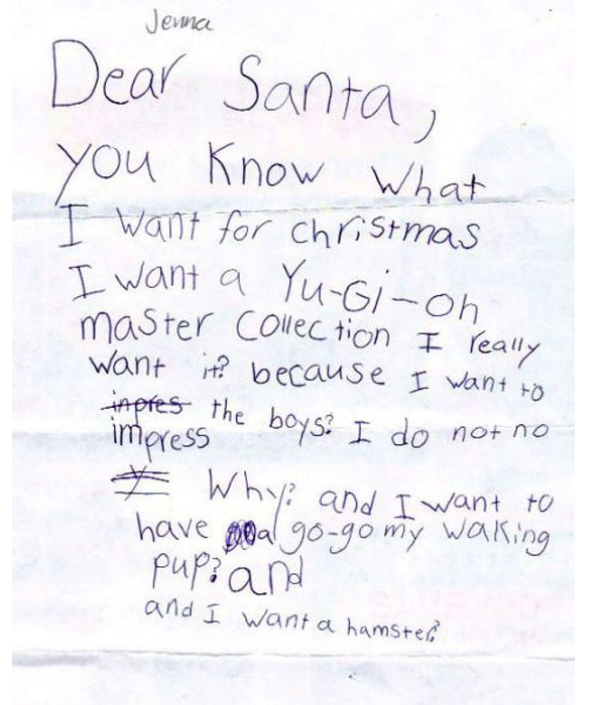 Jenna
Dear Santa,
you Know What
I want for christmas
I want a Yu-Gi-oh
master collection I really
want it? because I want to
inpres the boys? I do not no
impress
y Why? and I want to
have a go-go my walking
pup? and
and I want a hamster?